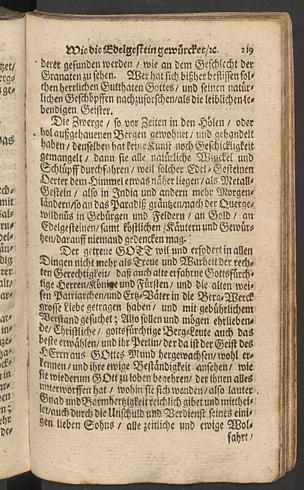 Wie die Edelgestein gewürcket/ ꝛc. 219
derer gefunden werden / wie an dem Geschlecht der
Granaten zu sehen. Wer hat sich bißher beflissen sol-
chen herrlichen Gutthaten Gottes / und seinen natür-
lichen Geschöpffen nachzuforschen/ als die leiblichen le-
bendigen Geister.
Die Zwerge / so vor Zeiten in den Hölen / oder
hol außgehauenen Bergen gewohnet / und gehandelt
haben / denselben hat keine Kunst noch Geschickligkeit
gemangelt / dann sie alle natürliche Winckel und
Schlüpff durchfahren / weil solcher Edel-Gesteinen
Oerter dem Himmel etwas näher liegen / als Metall-
Gestein / also in India und andern mehr Morgen-
ländern/ so an das Paradiß gräntzen/ nach der
wildnüs in Gebürgen und Feldern / an Gold / an
Edelgesteinen/ samt köstlichen Kräutern und Gewür-
tzen/ darauff niemand gedencken mag.
Der getreue GOTT wil und erfodert in allen
Dingen nicht mehr als Treue und Warheit der rech-
ten Gerechtigkeit / daß auch alte erfahrne Gottsfürch-
tige Herren/ Könige und Fürsten / und die alten wei-
sen Patriarchen/ und Ertz-Väter in die Berg-Werck
grosse Liebe getragen haben / und mit gebührlichem
Verstand gesuchet; Also sollen und mögen ehrlieben-
de/ Christliche / gottsfürchtige Berg-Leute auch das
beste erwählen/ und ihr Perlin/ der da ist der Geist des
HErrn aus GOttes Mund hergewachsen/ wohl er-
kennen / und ihre ewige Beständigkeit ansehen / wie
sie wiederum GOtt zu loben begehren / der ihnen alles
unterworffen hat / wohin sie sich wenden/ also lauter
Gnad und Barmhertzigkeit reichlich gibet und mitthei-
let/ auch durch die Unschuld und Verdienst seines eini-
gen lieben Sohns / alle zeitliche und ewige Wol-
fahrt /